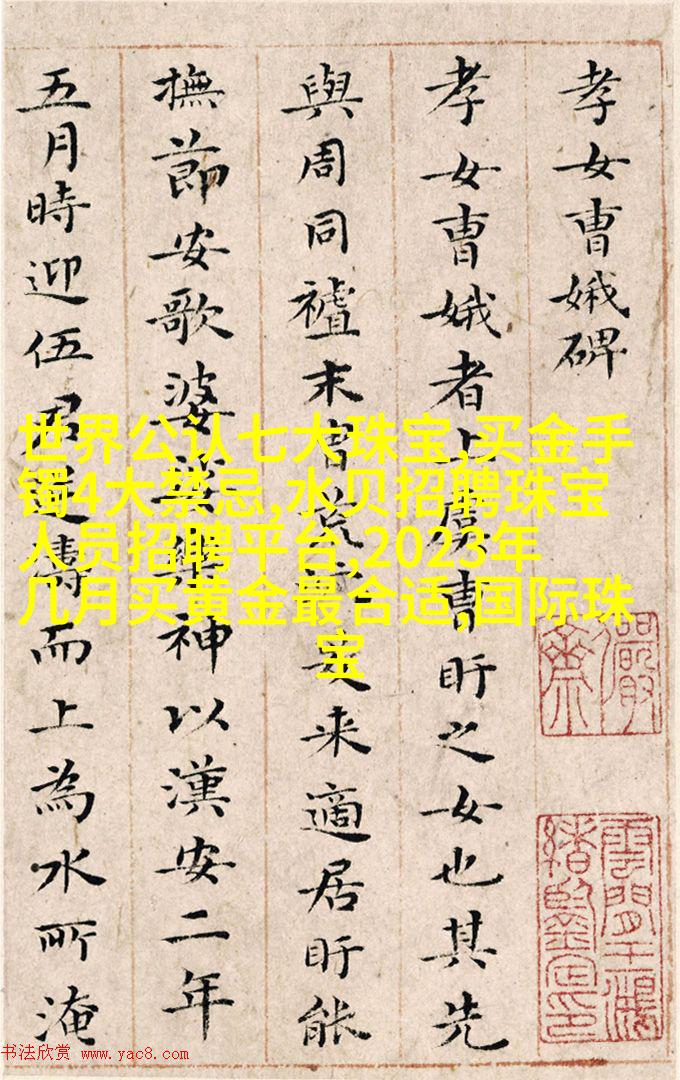 孝女曹娥碑
孝女曹娥者上虞曹盱之女也其先
與周同末胄荒沈爰来適居盱能
撫節安歌婆娑樂神以漢安二年
五月時迎伍君逆濤而上為水所淹
世界公认七大珠宝,买金手
镯4大禁忌,水贝招聘珠宝
人员招聘平台,2023年
几月买黄金最合适,国际珠
宝
儼齋
雲間王鴻
緒鑒定印
书法欣赏 www.yac8.com